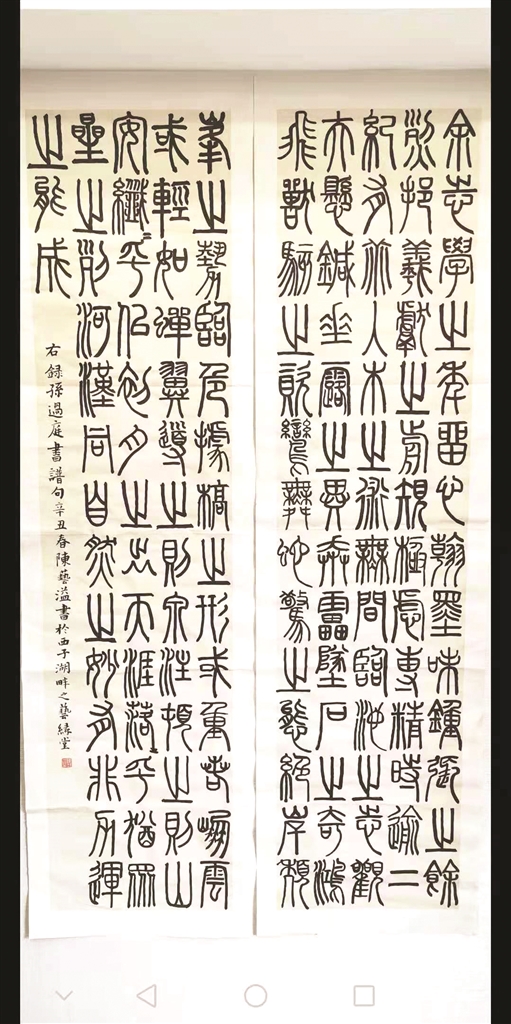 余志學之年留心翰墨味鍾張之餘
烈挹羲獻之前規極慮專精時逾二
紀有乖入木之術無間臨池之志觀
夫懸鍼垂露之異奔雷墜石之奇鴻
飛獸駭之資鸞舞蛇驚之態絕岸頹
峯之勢臨危據槁之形或重若崩雲
或輕如蟬翼導之則泉注頓之則山
安纖〻乎似初月之出天涯落〻乎猶眾
星之列河漢同自然之妙有非力運
之能成
右錄孫過庭書譜句辛丑春陳藝溢書於西子湖畔之藝緣堂